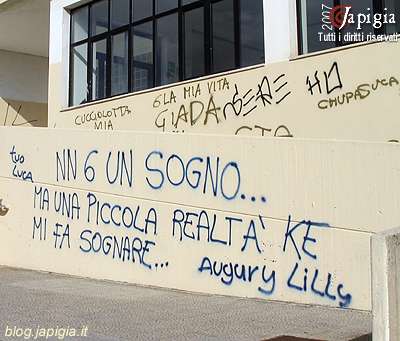 2007 Japigia
Tutti i diritti riservati
CUCCIOLOTTA
MIA
6 LA MIA VITA
GIADA
HO
CHUPA SUCA
tuo
LUCA
NN 6 UN SOGNO...
MA UNA PICCOLA REALTA' KE
MI FA SOGNARE...
AUGURY LILLY
blog.japigia.it